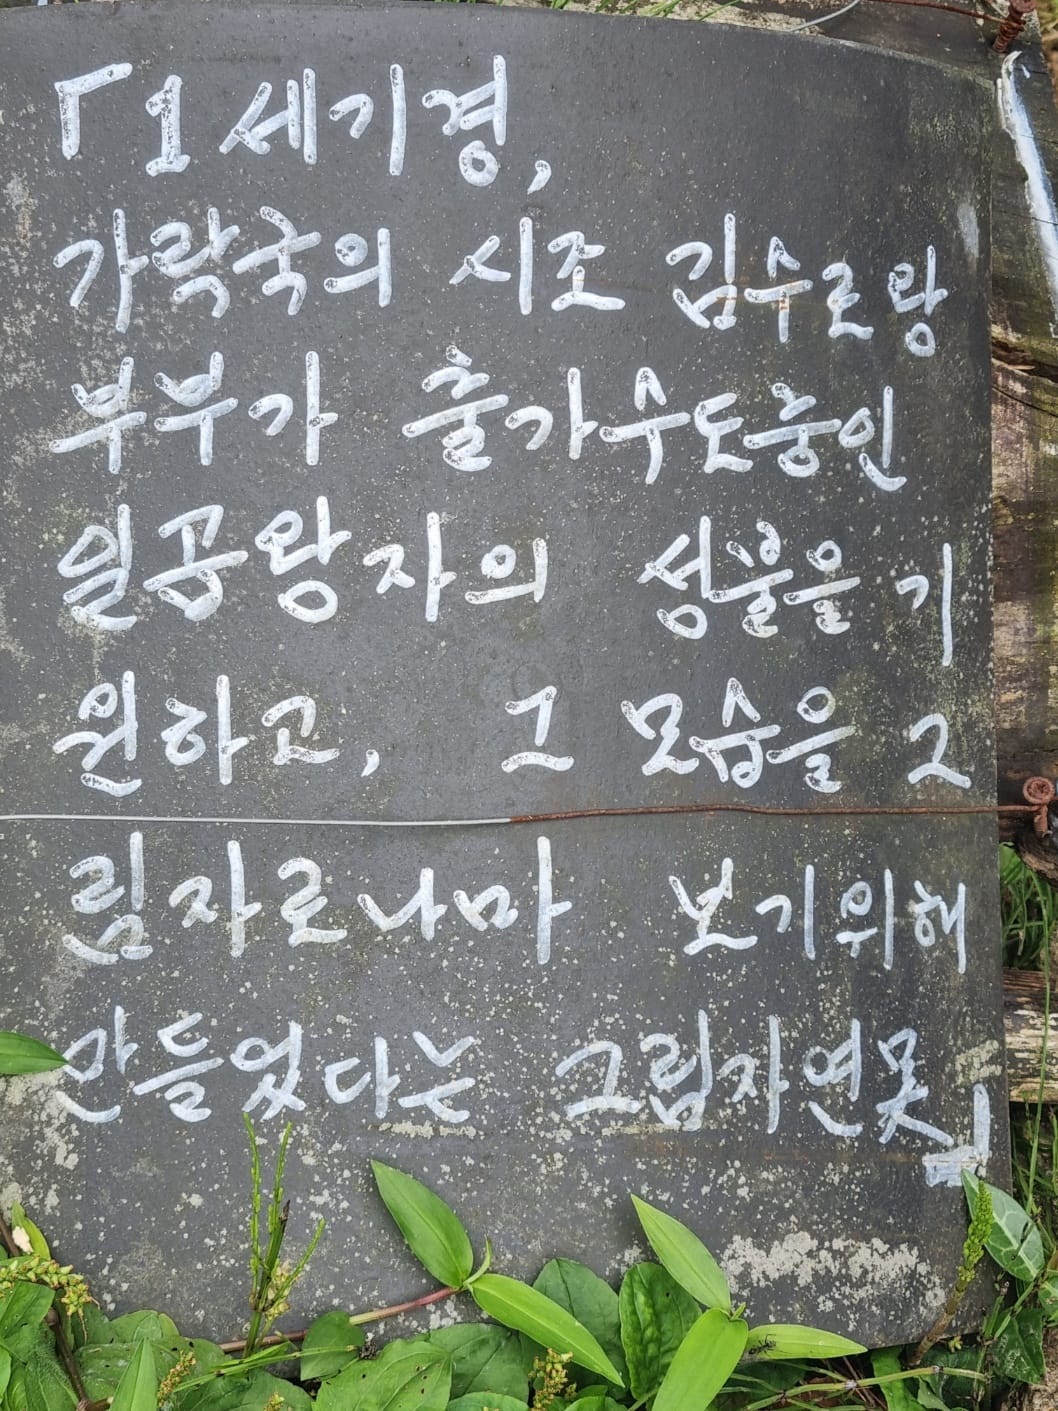 「1세기경,
가락국의 시조 김수로왕
부부가 출가수도승인
일곱왕자의 성불을 기
원하고, 그 모습을 그
림자로나마 보기위해
만들었다는 그림자연못」